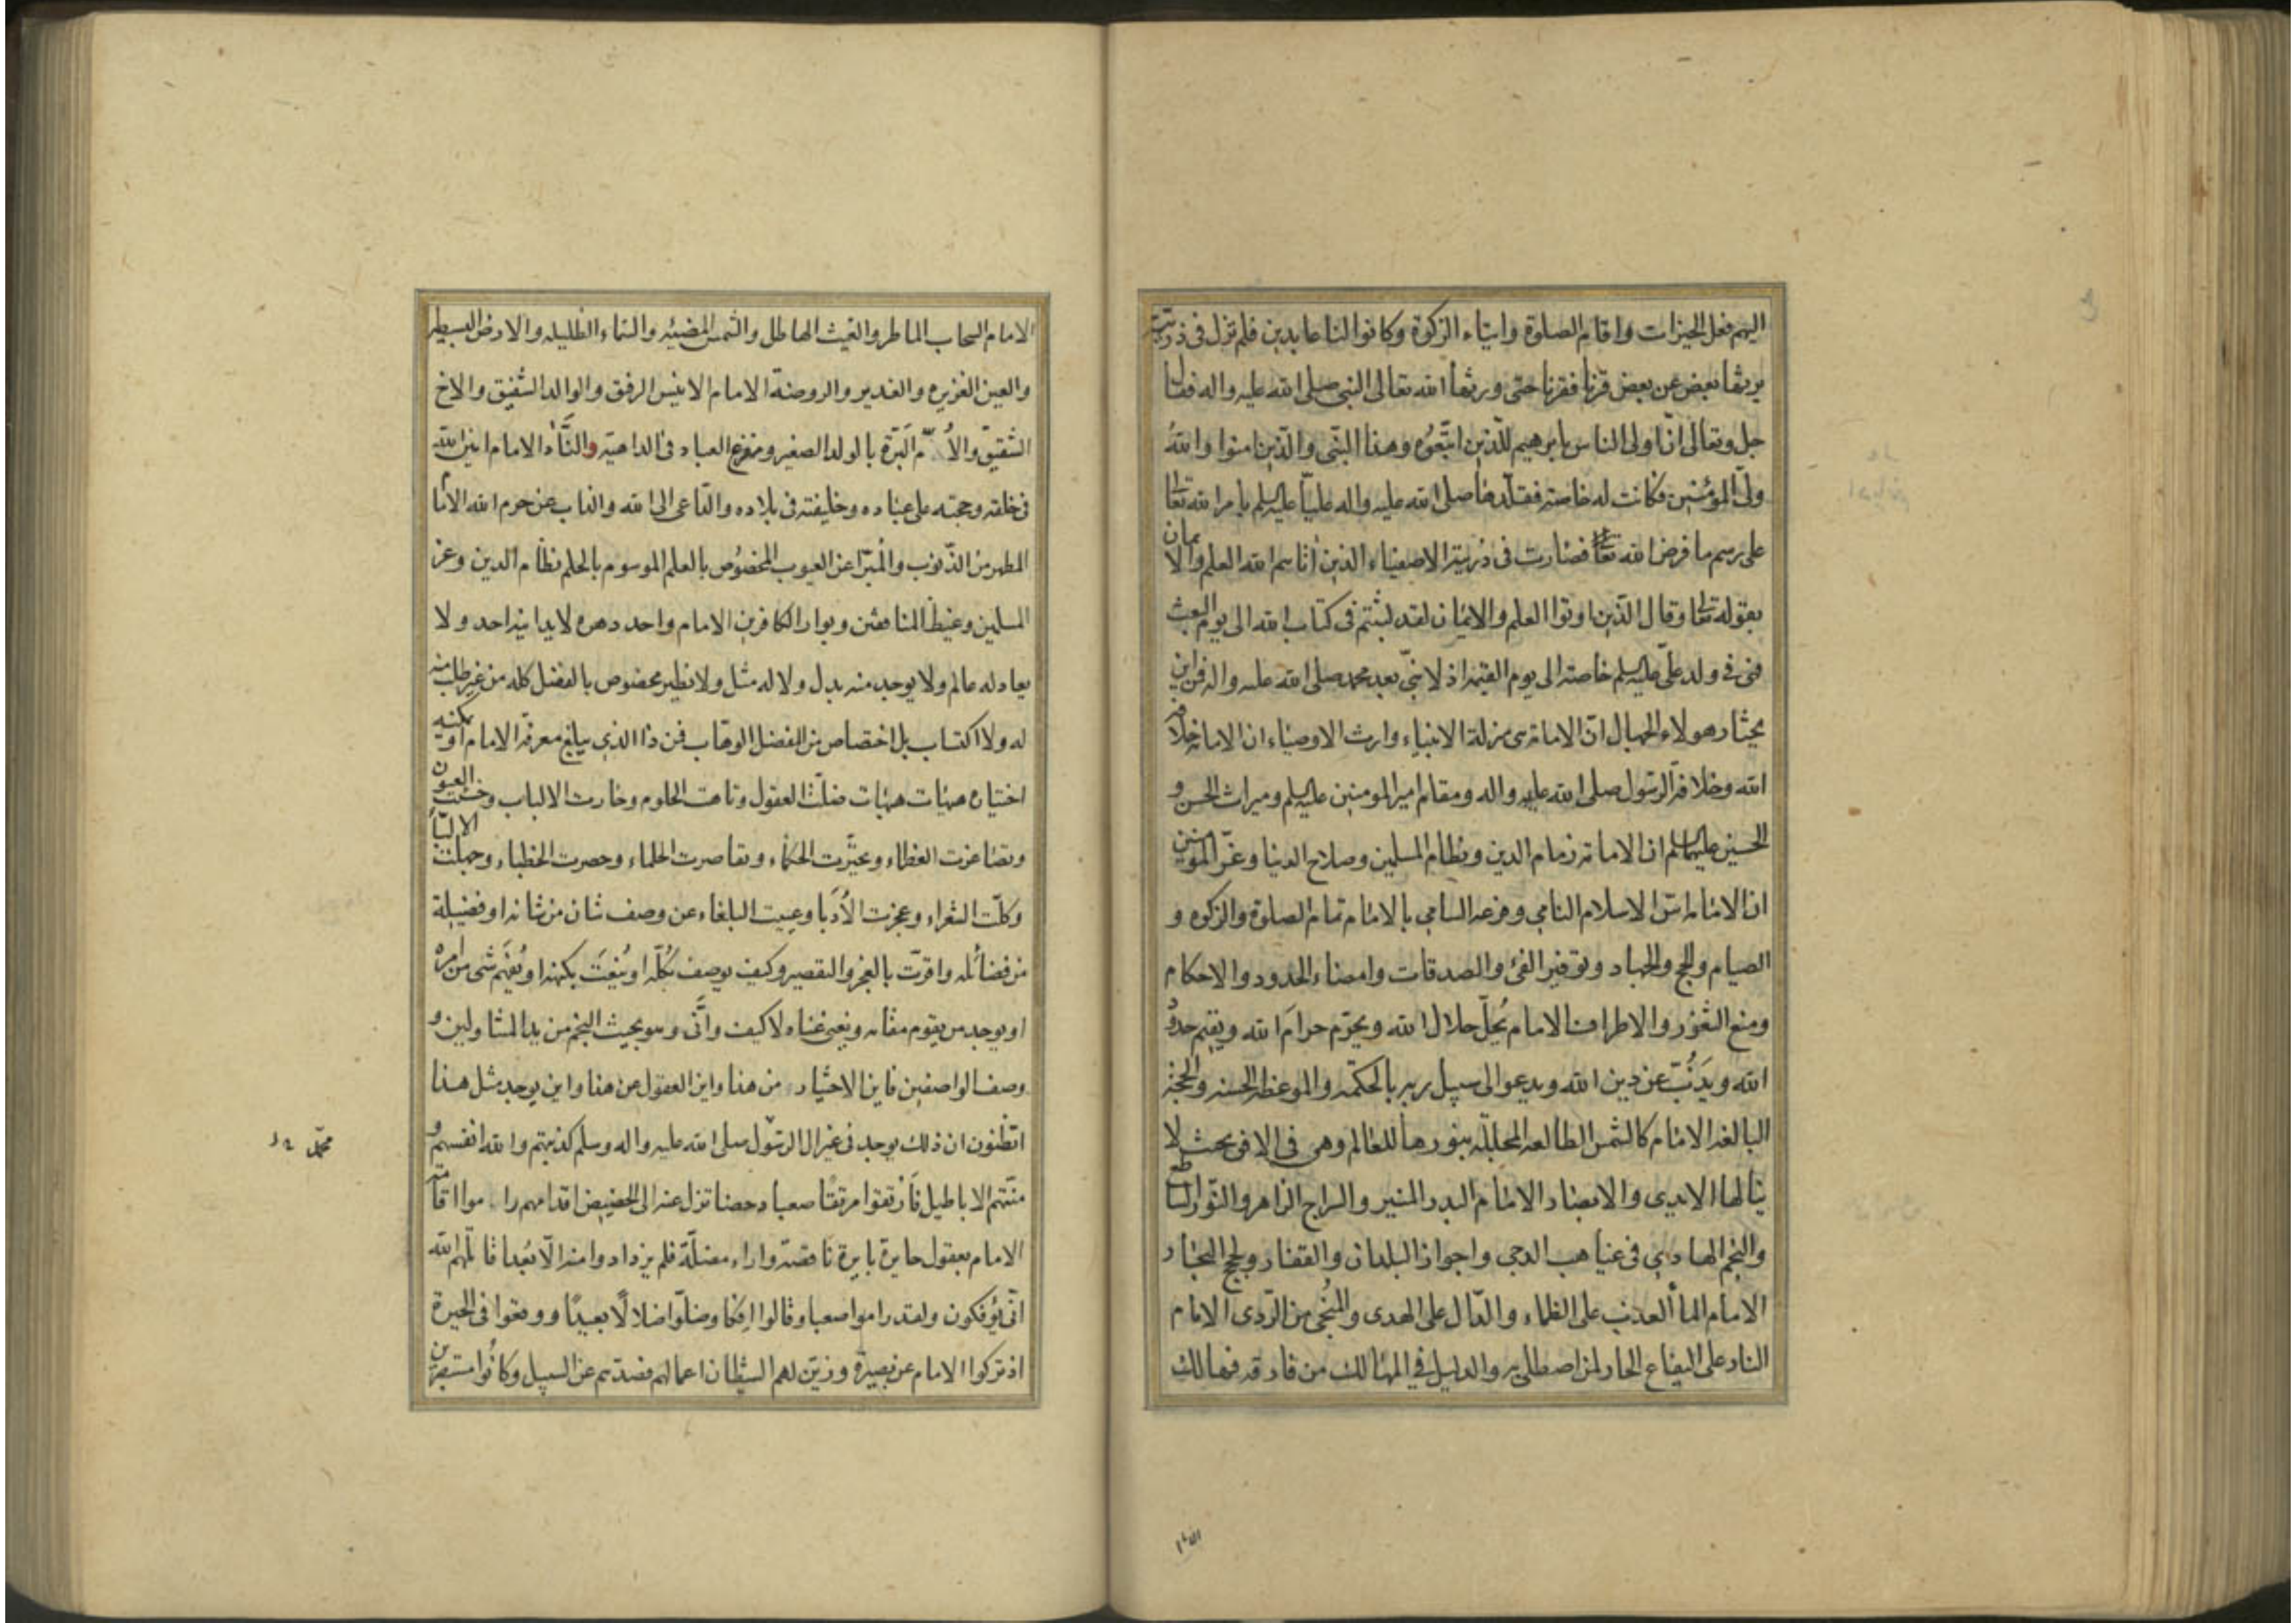 اليهم فعل الخيرات واقام الصلوة وايتاء الزكوة وكانوا لنا عابدين فلم تزل فى ذريته
يرثها بعض عن بعض قرنا فقرنا حتى ورثها الله تعالى النبى صلى الله عليه واله فقال
جل وتعالى انّ اولى الناس بابرهيم للّذين اتبّعوُه وهذا النّبى والّذين امنوا واللهُ
ولىّ المؤمنين فكانت له خاصة فقلّدها صلى الله عليه واله عليّا عليه السلم بامر الله تعالى
على رسم ما فرض الله تعالى فصارت فى ذريته الاصفياء الذين اتاهم الله العلم والايمان
بقوله تعالى وقال الّذين اوتوا العلم والايمان لقد لبثتم فى كتاب الله الى يوم البعث
فهى فى ولد علىّ عليه السلم خاصة الى يوم القيمة اذ لا نبىّ بعد محمد صلى الله عليه واله فمن اين
يختار هولاء الجهال انّ الامامة هى منزلة الانبياء وارث الاوصياء ان الامامة خلافة
الله وخلافة الرّسول صلى الله عليه واله ومقام امير المومنين عليه السلم وميراث الحسن و
الحسين عليهما السلم ان الامامة زمام الدين ونظام المسلمين وصلاح الدنيا وعزّ المومنين
ان الامامة اسّ الاسلام النامى وفرعه السامى بالامام تمام الصلوة والزكوه و
الصيام والحج والجهاد وتوفير الفئ والصدقات وامضاء الحدود والاحكام
ومنع الثغوُر والاطراف الامام يُحلّ حلال الله ويحرّم حرامَ الله ويقيم حدوُد
الله ويَذُبّ عن دين الله ويدعوا الى سبيل ربه بالحكمّه والموعظه الحسنه والحجة
البالغه الامام كالشمس الطالعه المجللّه بنورها للعالم وهى فى الافق بحيث لا
ينالها الايدى والابصار الامام البدر المنير والسراج الزاهر والنّور الساطع
والنجم الهادى فى غياهب الدجى واجواز البلدان والقفار ولجج البحار
الامام الماء العذب على الظماء والدّال على الهدى والمُنجى من الرّدى الامام
النار على اليفاع الحار لمن اصطلى به والدليل فى المهالك من فارقه فهالك
الامام
الامام السحاب الماطر والغيث الهاطل والشمس المضيئه والسماء الظليله والارض البسيطه
والعين الغزيره والغدير والروضة الامام الانيس الرفق والوالد الشّفيق والاخ
الشّقيق والاُمّ البَرّة بالولد الصغير ومفزع العباد فى الداهية والنّاَد الامام امين الله
فى خلقه وحجته على عباده وخليفته فى بلاده والدّاعى الى الله والذاب عن حرم الله الامام
المطهر من الذّنوب والمُبرّا عن العيوب المخصُوص بالعلم الموسوم بالحلم نظام الدين وعز
المسلمين وغيظُ المنافقين وبوار الكافرين الامام واحد دهره لا يدانيه احد ولا
يعادله عالم ولا يوجد منه بدل ولا له مثل ولا نظير مخصوص بالفضل كله من غير طلب منه
له ولا اكتساب بل اختصاص من المفضل الوهاب فمن ذا الذى يبلغ معرفة الامام او يمكنه
اختياره هيهات هيهات ضلّت العقول وتاهت الحلوم وحارت الالباب وخسئت العيون
وتصاغرت العظماء وتحيّرت الحكماء وتقاصرت الحلماء وحصرت الخطباء وجهلت الالبّاء
وكلّت الشعراء وعجزت الاُدَبا وعييت البلغاء عن وصف شان من شانه او فضيلة
من فضائله واقرّت بالعجز والتقصير وكيف يوصف بكُلّه او يُنعَتَ بكنهه او يُفهَم شى من امره
او يوجد من يقوم مقامه ويغنى غناه لا كيف وانّى وهو بحيث النجم من يد المتناولين و
وصف الواصفين فاين الاختيار من هذا واين العقول عن هذا واين يوجد مثل هذا
اتظنون ان ذلك يوجد فى غير ال الرسّول صلى الله عليه واله وسلم كذبتهم والله انفسهم و
منّتهم الاباطيل فاَرْتقوا مرتقًا صعبا دحضا تزل عنه الى الحضيض اقدامهم راموا اقامة
الامام بعقول حايرة بايرة ناقصة واراء مضلّة فلم يزدادوا منه الّا بُعدا قاتلهم الله
انّى يُؤفكون ولقد راموا صعبا وقالوا افكا وضلّوا ضلالًا بعيدًا ووقعوا فى الحيرة
اذ تركوا الامام عن بصيرة وزيّن لهم الشيطان اعمالهم فصدّهم عن السبيل وكانُوا مستبصرين
محمّد